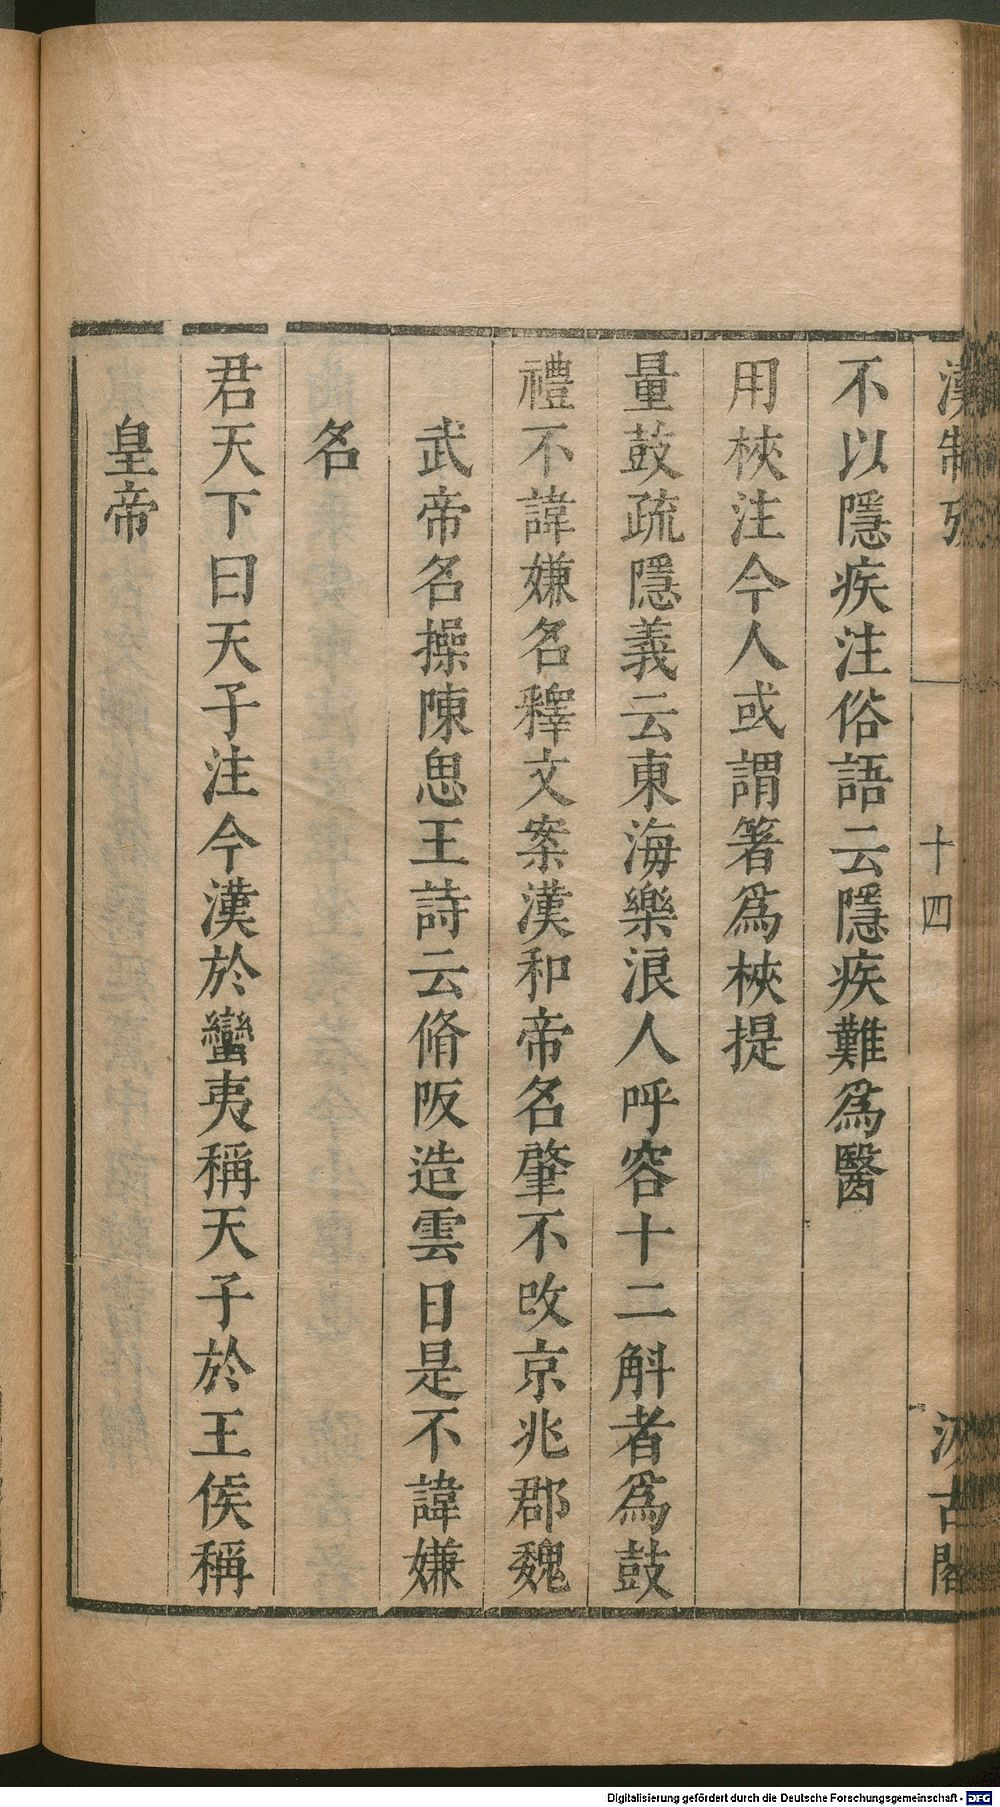 漢制攷
十四
汲古閣
不以隱疾注俗語云隱疾難爲醫
用梜注今人或謂箸爲梜提
量鼓疏隱義云東海樂浪人呼容十二斛者爲鼓
禮不諱嫌名釋文案漢和帝名肇不改京兆郡魏
武帝名操陳思王詩云脩阪造雲日是不諱嫌
名
君天下曰天子注今漢於蠻夷稱天子於王侯稱
皇帝
Digitalisierung gefördert durch die Deutsche Forschungsgemeinschaft - DFG